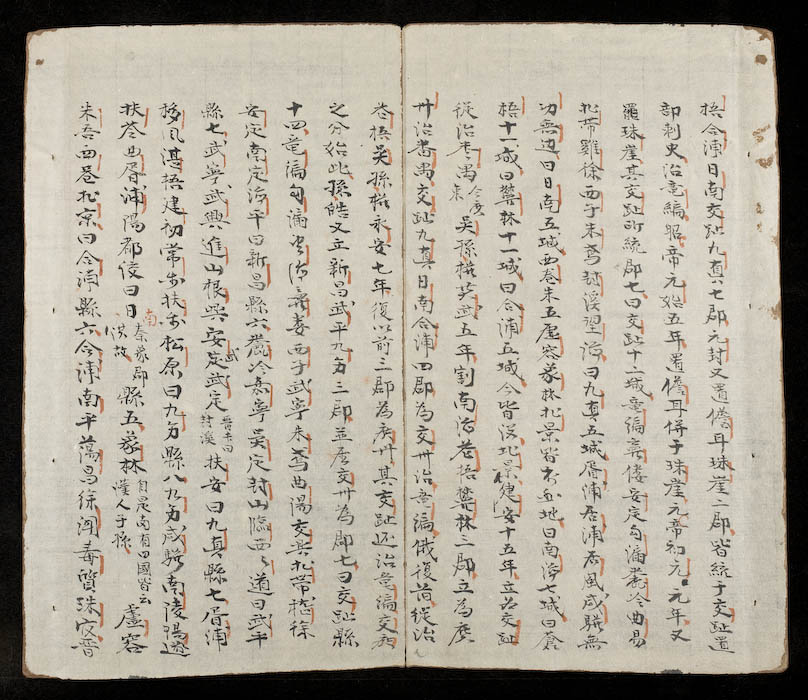 梧合浦日南交趾九真七郡元封又置儋耳珠崖二郡皆統于交趾置
部刺史治竜編昭帝元始五年置儋耳併于珠崖元帝初元元年又
罷珠崖其交趾所統郡七曰交趾十二城竜編羸𨻻安定苟漏麓冷曲易
北帶雞徐西于朱鳶封溪望海曰九真五城胥浦居浦居風咸驩無
功無边曰日南五城西卷朱五盧容象林北景皆 地日南 七城曰蒼
梧十一城曰欎林十一城曰合浦五城今皆没北景建安十五年立為交趾
從治番禺今廣東吳孫權黃武五年割南海蒼梧欎林三郡立為廣
卅治番禺交趾九真日南合浦四郡為交卅治竜編俄復前從治
蒼梧吳孫權永安七年復以前三郡為廣卅其交趾还治竜编交廣
之分始此孫皓又立新昌武平九 三郡並屬交卅為郡七曰交趾縣
十四竜編苟漏望海羸婁西于武寧朱鳶曲陽交興北帶稽徐
安定南定海平曰新昌縣六麓冷嘉寧吳定封山臨西西道曰武平
縣七武寧武興進山根與安定武武定晉末曰封溪扶安曰九真縣七胥浦
移風湛梧建初常楽扶楽松原曰九 縣八九 咸驩南陵陽遂
扶苓曲胥浦陽都佼曰日南秦象郡漢故縣五象林自是南有四國皆云漢人子孫盧容
朱吾西卷北京曰合浦縣六合浦南平蕩昌徐聞毒質珠官晉